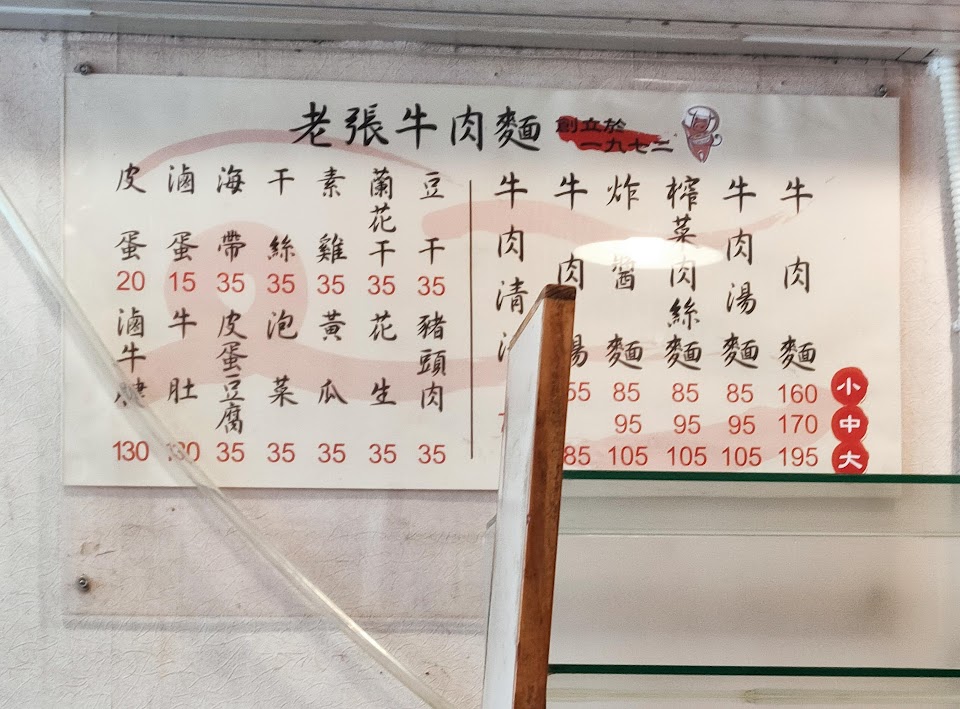 老張牛肉麵
創立於
一九七二
小
中
大
牛肉麵 160 170 195
牛肉湯麵 85 95 105
榨菜肉絲麵 85 95 105
炸醬麵 85 95 105
牛肉湯
牛肉清
豆干 35
蘭花干 35
素雞 35
干絲 35
海帶 35
滷蛋 15
皮蛋 20
豬頭肉 35
花生 35
黃瓜 35
泡菜 35
皮蛋豆腐 35
牛肚 130
滷牛腱 130